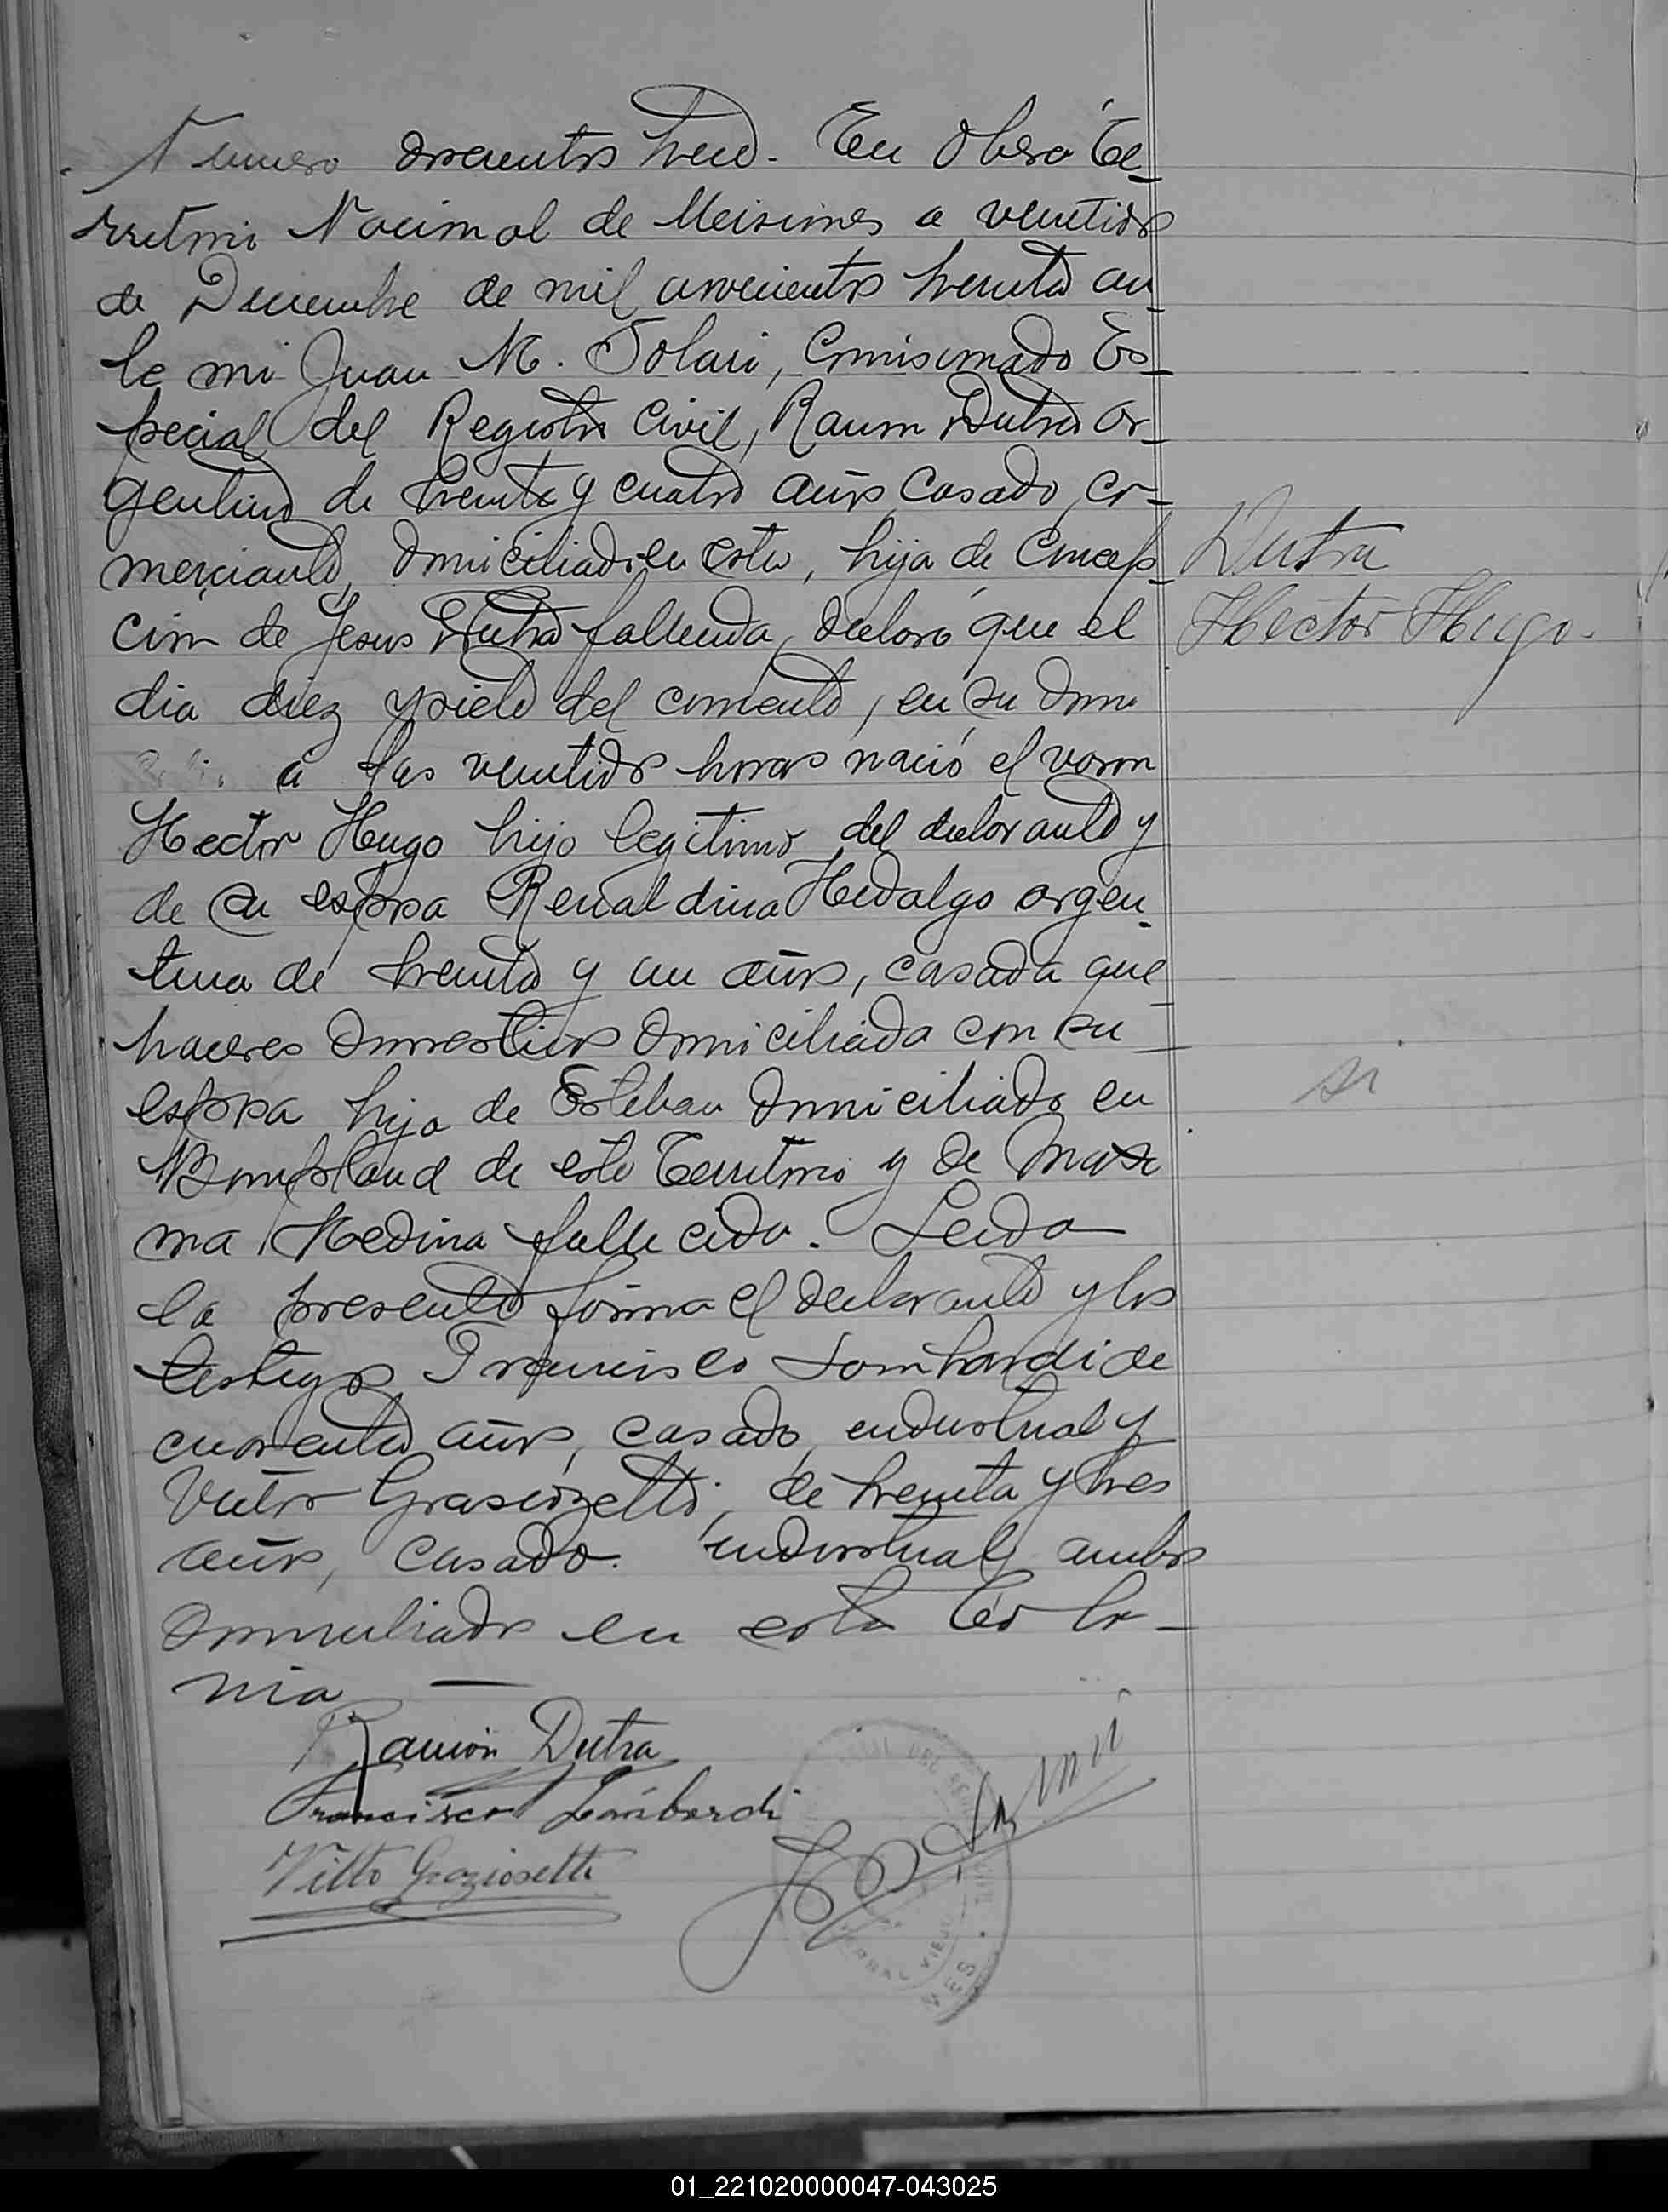 Numero doscientos trece. En Obera Te-
rritorio Nacional de Misiones a veintidos
de Diciembre de mil novecientos treinta an-
te mi Juan M. Solari, Comisionado Es-
pecial del Registro Civil, Ramon Dutra ar-
gentino de treinta y cuatro años casado, co-
merciante, domiciliado en esta, hijo de Concep-
cion de Jesus Dutra fallecida, declaro que el
dia diez y siete del corriente, en su domi
a las veintidos horas nació el varon
Hector Hugo hijo legitimo del declarante y
de su esposa Hidalgo argen-
tina de treinta y un años, casada que-
haceres domesticos domiciliada con su
esposo hija de Esteban domiciliado en
Bompland de este Territorio y de Maxi
ma Medina fallecida. Leida
la presente firma el declarante y los
testigos Francisco Lombardi de
cuarenta años, casado, industrial y
Victor Grasiozetti, de treinta y tres
años, casado. industrial, ambos
domiciliados en esta Co lo-
nia —
Dutra
Hector Hugo.
si
Ramón Dutra
Francisco Lombardi
Vitto Graziosetti
YERBAL VIEJO